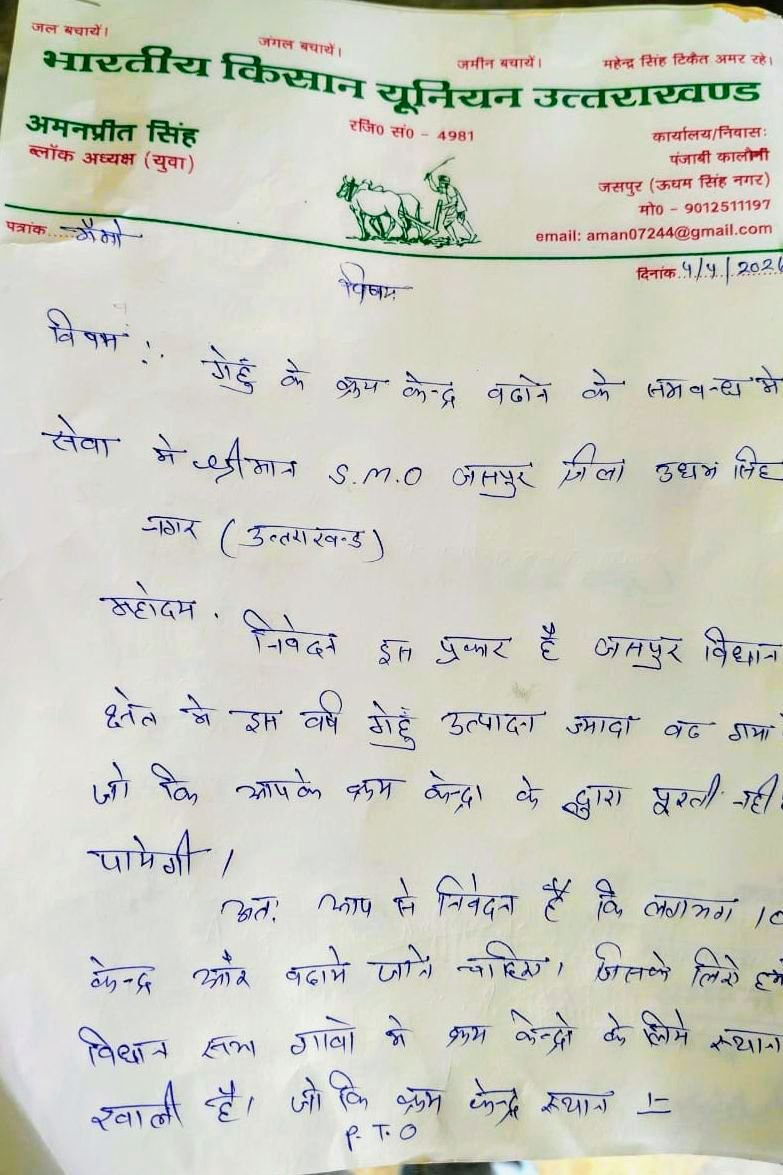 जल बचायें। जंगल बचायें। जमीन बचायें। महेन्द्र सिंह टिकैत अमर रहे।
भारतीय किसान यूनियन उत्तराखण्ड
अमनप्रीत सिंह
ब्लॉक अध्यक्ष (युवा)
रजि0 सं0 - 4981
कार्यालय/निवासः
पंजाबी कालौनी
जसपुर (ऊधम सिंह नगर)
मो0 - 9012511197
email: aman07244@gmail.com
पत्रांक मैमो
दिनांक 4/4/202
विषय
विषय :. गेहुँ के क्रय केन्द्र बढाने के समबन्ध मे
सेवा मे श्रीमान S.M.O जसपुर जिला उधम सिंह
नगर (उत्तराखन्ड)
महोदय .
निवेदन इस प्रकार है जसपुर विधान
क्षेत्र मे इस वर्ष गेहुँ उत्पादन ज्यादा बढ गया
जो कि आपके क्रय केन्द्रा के द्वारा पूरती नही
पायेगी।
अतः आप से निवेदन है कि लगभग 10
केन्द्र और बढाये जाने चाहिए। जिसके लिये हमा
विधान सभा गावो मे क्रय केन्द्रो के लिये स्थान
खाली है। जो कि क्रय केन्द्र स्थान :-
P.T.O